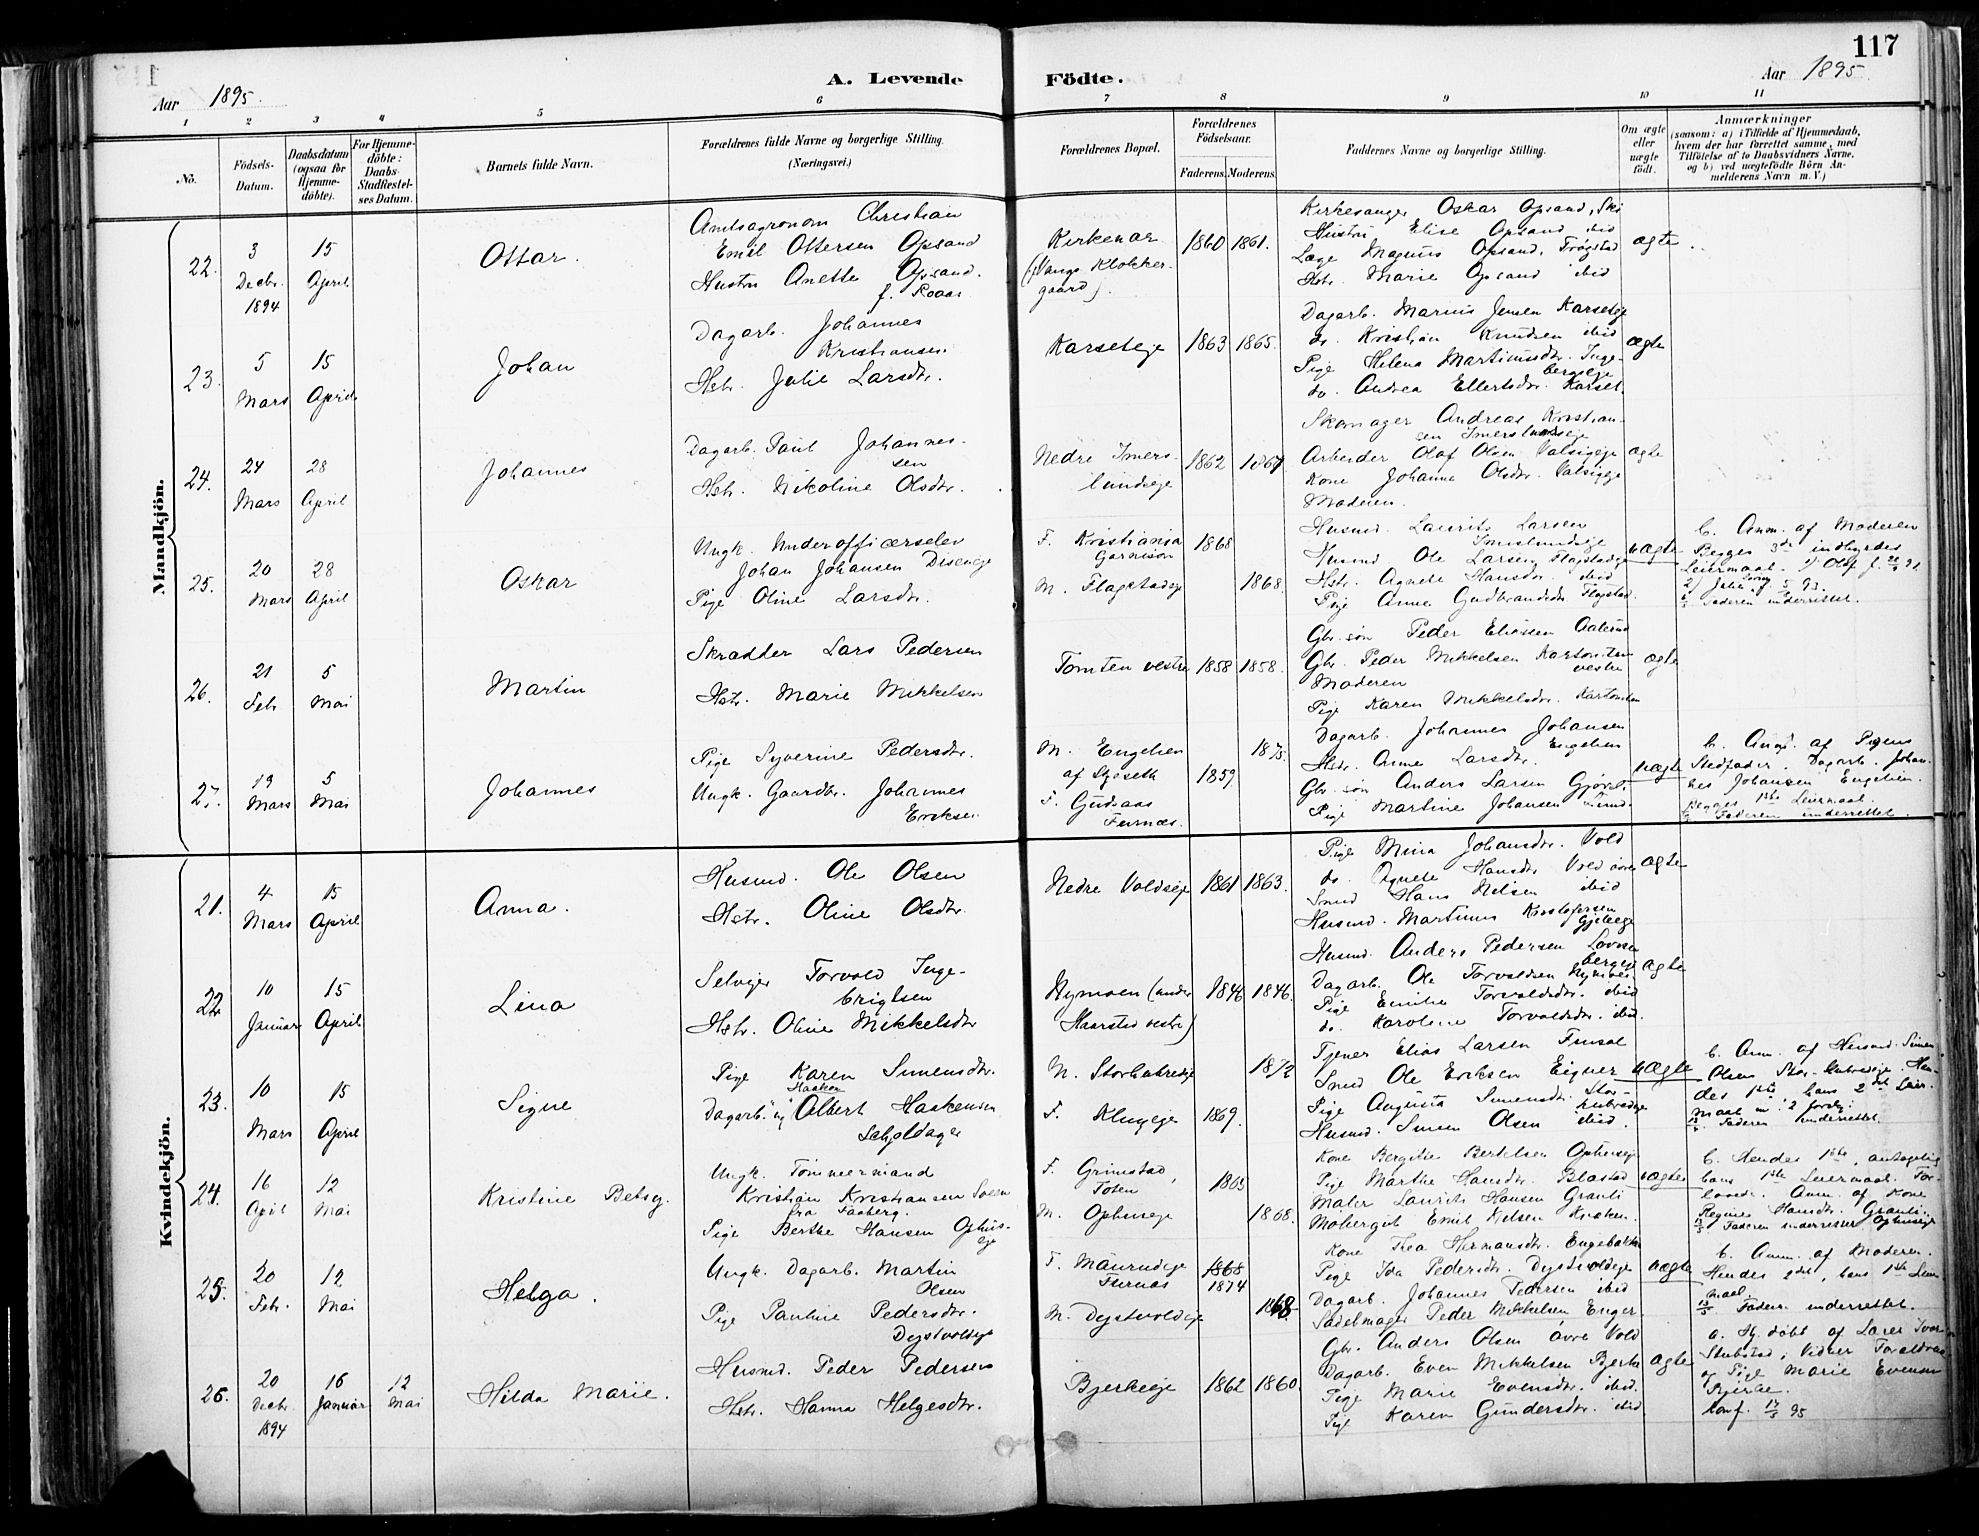 117
Aar 1895.
A. Levende Födte.
Aar 1895.
1 2 3 4 5 6 7 8 9 10 11
No.
Födsels-Datum.
Daabsdatum (ogsaa for Hjemmedöbte).
For Hjemmedöbte: Daabs-Stadfæstelses Datum.
Barnets fulde Navn.
Forældrenes fulde Navne og borgerlige Stilling. (Næringsvei.)
Forældrenes Bopæl.
Forældrenes Födselsaar.
Faderens. Moderens.
Faddernes Navne og borgerlige Stilling.
Om ægte eller uægte födt.
Anmærkninger
(saasom: a) i Tilfælde af Hjemmedaab, hvem der har forrettet samme, med Tilföielse af to Daabsvidners Navne, og b) ved uægtefödte Börn Anmelderens Navn m. V.)
Mandkjön.
22.
3 Decbr. 1894
15 April
Ottar.
Amtsagronom Christian
Emil Ottersen Opsand
Hustru Anette Opsand.
f. Roaas
Kirkenær
(Vangs Klokker-
gaard).
1860 1861.
Kirkesanger Oskar Opsand, Ski
Hustru Elise Opsand ibid
Læge Magnus Opsand, Trøgstad
Hstr. Marie Opsand ibid
ægte
23.
5 Mars
15 April
Johan
Dagarb. Johannes
Kristiansen
Hstr. Julie Larsdtr.
Karseteje
1863 1865.
Dagarb. Marius Jensen Karseteje
do. Kristian Knudsen ibid
Pige Helena Martinusdtr. Inge-
bergseje
do. Andrea Ellertsdtr. Karset.
ægte
24.
24 Mars
28 April
Johannes
Dagarb. Paul Johannes-
sen
Hstr. Nikoline Olsdtr.
Nedre Imers-
lundseje
1862 1867
Skomager Andreas Kristian-
sen Imerslundseje
Arbeider Olaf Olsen
Kone Johanne Olsdtr.
Moderen.
ægte
25.
20 Mars
28 April
Oskar
Ungk. Underofficerselev
Johan Johansen Diseneje
Pige Oline Larsdtr.
F. Kristiania
Garnison
M. Flagstadeje
1868
1868
Husmd. Laurits Larsen
Imerslundseje
Husmd. Ole Larsen Flagstadeje
Hstr. Agnete Hansdtr. ibid
Pige Anne Gudbrandsdtr. Flagstad.
uægte
b. Anm. af Moderen
Begges 3de indbyrdes
Leiermaal. 1) Olaf f.
2) Julie
Faderen underrettet.
26.
21 Febr.
5 Mai
Martin
Skrædder Lars Pedersen
Hstr. Marie Mikkelsen
Tomten vestre
1858 1858.
Gbr. søn Peder Eliassen
Gbr. Peder Mikkelsen Kartomten
vestre
Moderen
Pige Karen Mikkelsdtr. Kartomten
ægte
27.
19 Mars
5 Mai
Johannes
Pige Syverine Pedersdtr.
Ungk. Gaardbr. Johannes
Eriksen
M. Engelien
af Sjøseth
F. Gudsaas
Furnæs.
1859
1875.
Dagarb. Johannes Johansen
Engelien
Hstr. Anne Larsdtr.
Gbr. søn Anders Larsen
Pige Martine Johansen
uægte
b. Anm. af Pigens
Stedfader, Dagarb. Johan-
nes Johansen Engelien.
Begges 1ste Leiermaal.
Faderen underrettet.
Kvindekjön.
21.
4 Mars
15 April
Anna.
Husmd. Ole Olsen
Hstr. Oline Olsdtr.
Nedre Voldseje
1861 1863.
Pige Mina Johansdtr. Vold
do. Agnete Hansdtr. Vold øvre
Smed Hans Nilsen ibid
Husmd. Martinus Kristofersen
ægte
22
10 Januar
15 April
Lina
Selvejer Torvald Inge-
brigtsen
Hstr. Oline Mikkelsdtr
Nymoen (under
Haarstad vestre)
1846 1846.
Husmd. Anders Pedersen
Dagarb. Ole Torvaldsen Nymoen
Pige Emilie Torvaldsdtr. ibid
do. Karoline Torvaldsdtr. ibid.
ægte
23.
10 Mars
15 April
Signe
Pige Karen Simensdtr.
Haakon
Dagarb. Albert Haakensen
Schjoldager
M. Storhubredeje
F.
1869.
1872
Tjener Elias Larsen Finsal
Smed Ole Eriksen Eigner
Pige Augusta Simensdtr. Stor-
hubredeje
Husmd. Simen Olsen ibid.
uægte
b. Anm. af Husmd. Simen
Olsen Stor-hubredeje. Hen-
des 1ste, hans 2det Leier-
maal
Faderen underrettet.
24.
16 April
12 Mai
Kristine Betsy.
Ungk. Tømmermand
Kristian Kristiansen
fra Faaberg.
Pige Berthe Hansen Ophus-
eje
F. Grimstad,
Toten
M. Ophuseje
1865
1868.
Kone Bergithe Bertelsen Ophuseje
Pige Marthe Hansdtr. Blæstad
Maler Laurits Hansen Granli
Emil Nilsen
uægte
b. Hendes 1ste, antagelig
hans 1ste Leiermaal. For-
lovede. Anm. af Kone
Regine Hansdtr. Granli.
Faderen underrettet
25.
20 Febr.
12 Mai
Helga.
Ungk. Dagarb. Martin
Olsen
Pige Pauline Pedersdtr.
Dystvoldeje
F.
Furnæs
M. Dystvoldeje
1868
1874
1868.
Kone Thea Hermansdtr. Engebakken
Pige Ida Pedersdtr. Dystvoldeje
Dagarb. Johannes Pedersen ibid
Sadelmager Peder Mikkelsen Enger
uægte
b. Anm. af Moderen.
Hendes 2det, hans 1ste Leier-
maal.
13/5 Faderen underrettet.
26.
20 Decbr. 1894
16 Januar
12 Mai
Hilda Marie.
Husmd. Peder Pedersen
Hstr. Hanna Helgesdtr.
Bjerkeeje
1862 1860.
Gbr. Anders Olsen øvre Vold
Dagarb. Even Mikkelsen Bjerke
Pige Marie Evensdtr. ibid.
Pige Karen Gundersdtr. ibid
ægte
a. Hj. døbt af Lærer Ivar
Stubstad, Vidner Forældrene
og Pige Marie Evensen
Bjerke.
Konf. 12/5 95